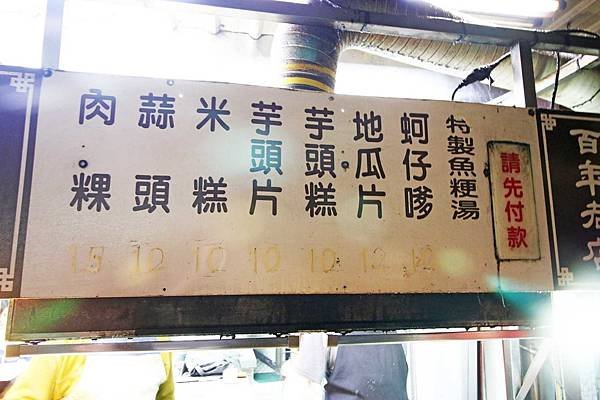 百年老店
請先付款
特製魚粳湯
蚵仔嗲
12
地瓜片
12
芋頭糕
10
芋頭片
10
米糕
10
蒜頭
10
肉粿
15